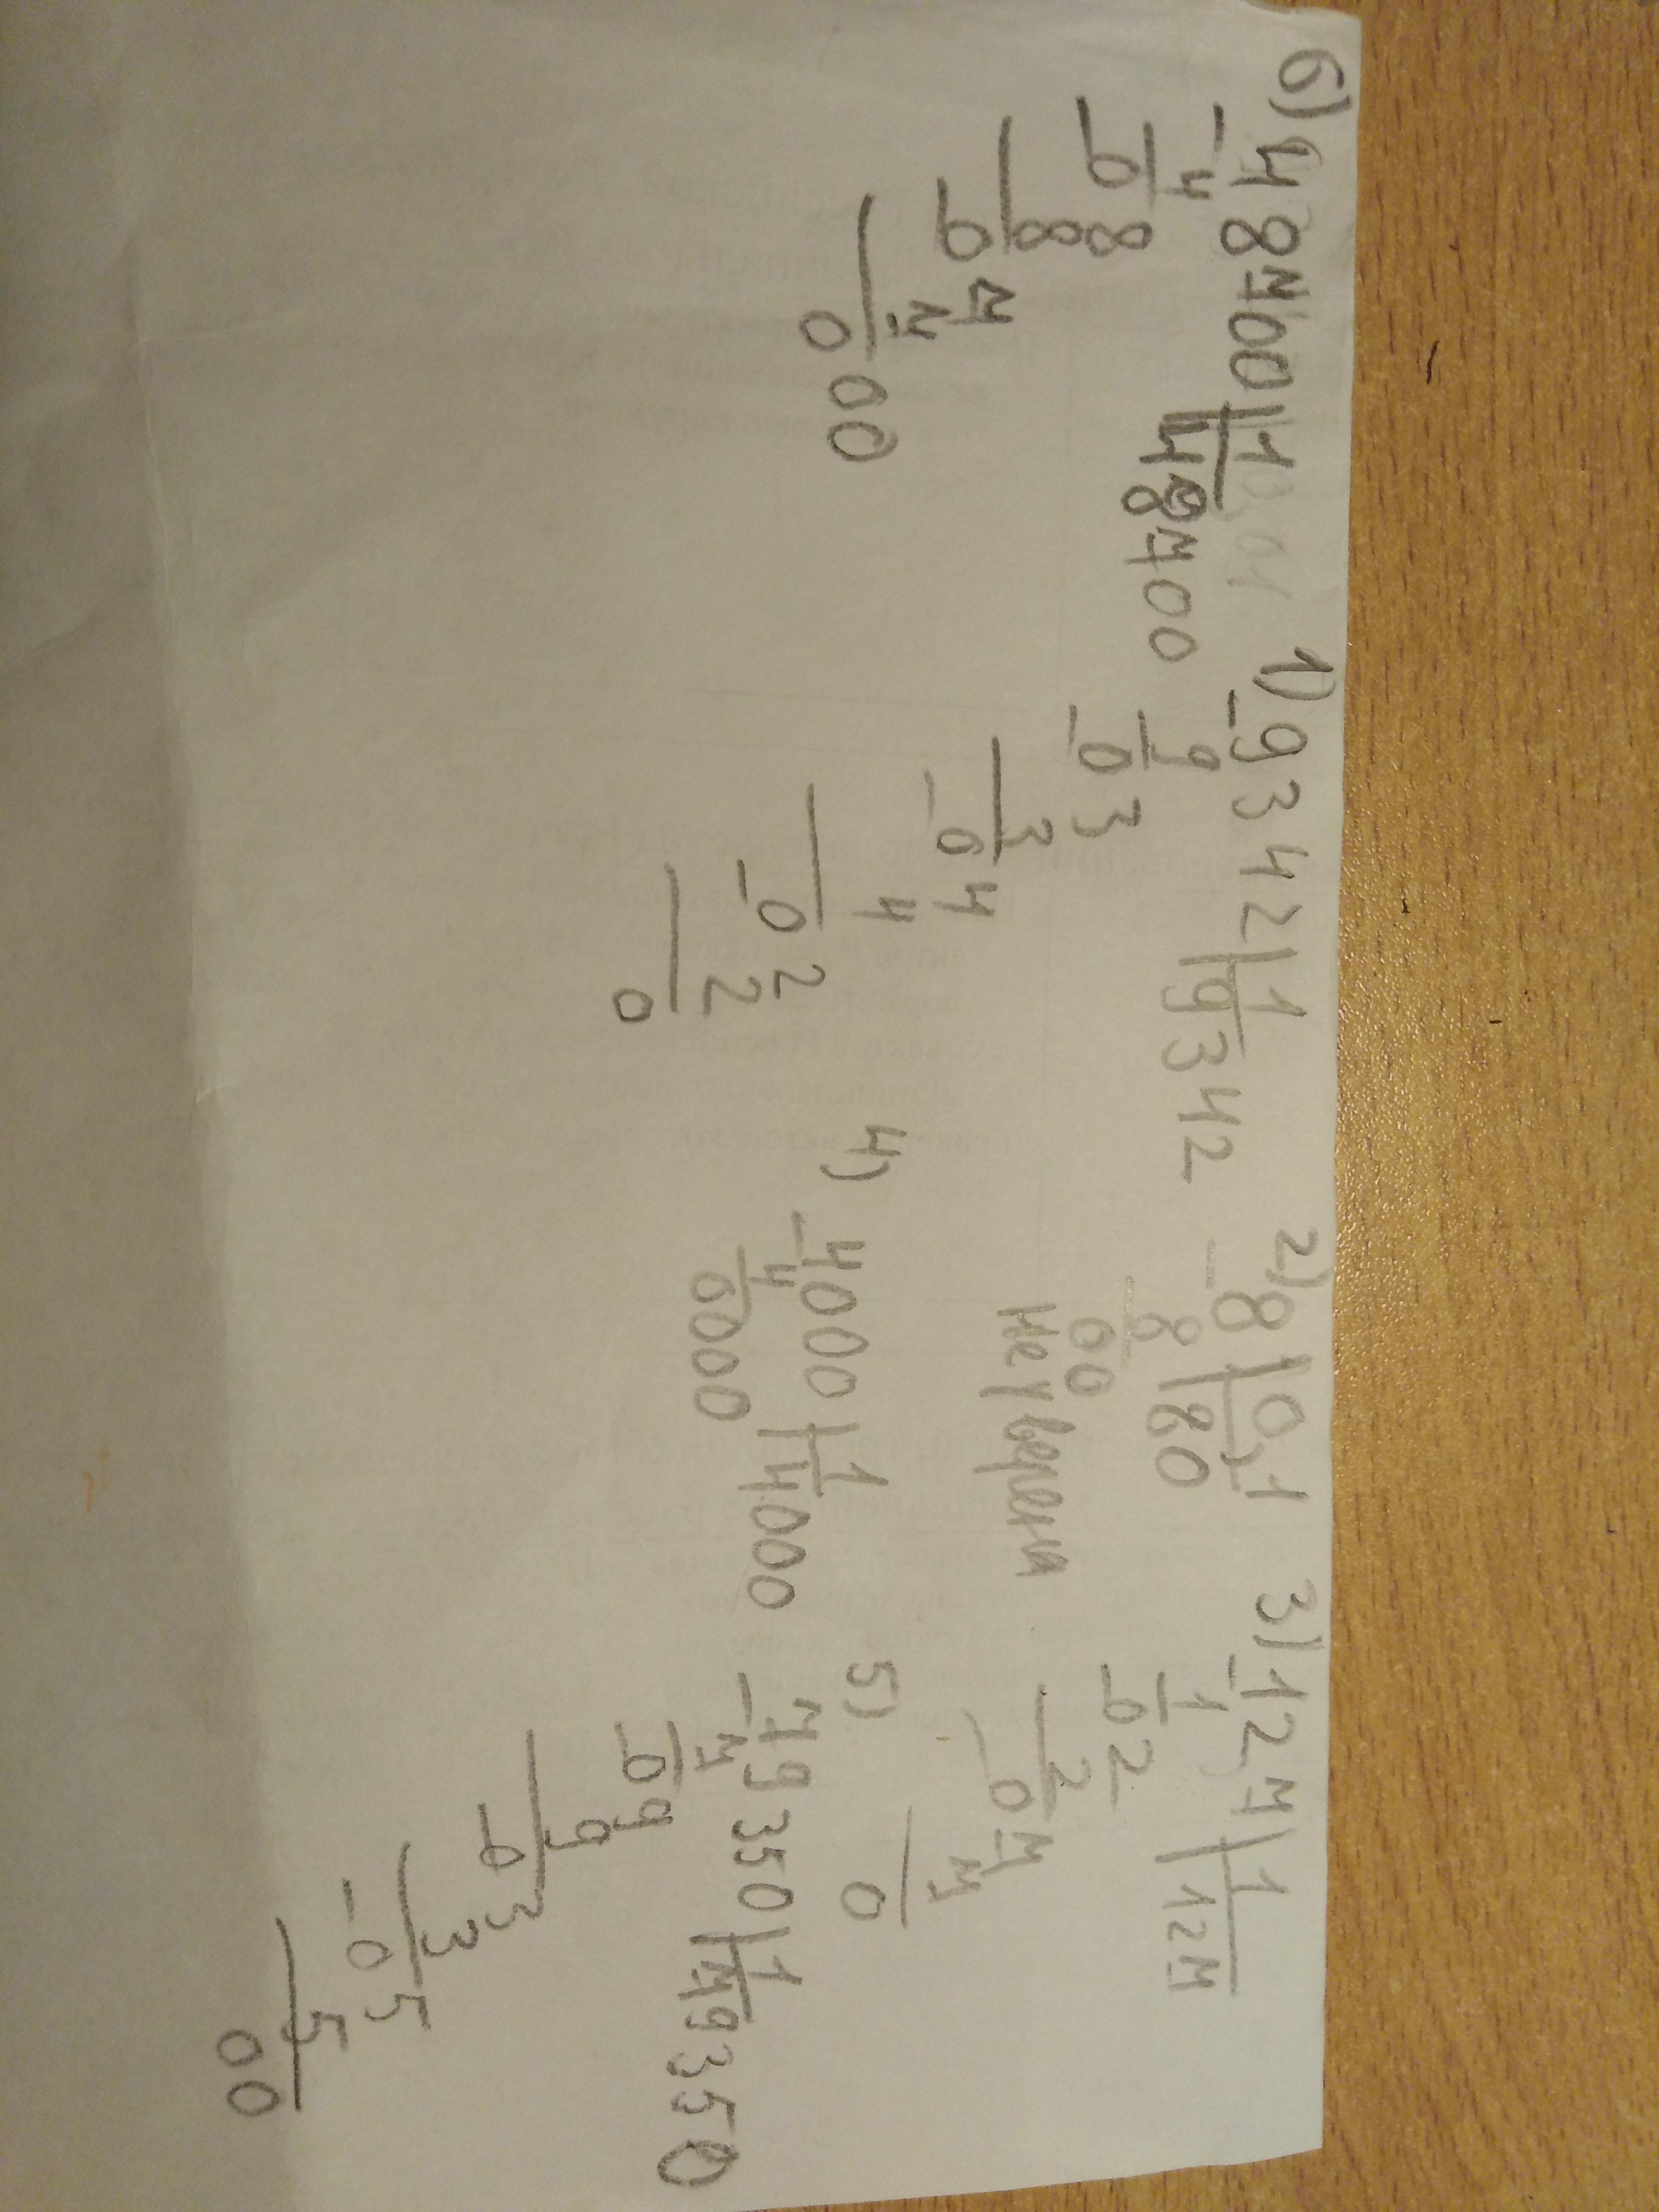 6) 48700 | 1
- 4 | 48700
- 08
8
- 07
7
000
1) 9342 | 1
- 9 | 9342
- 03
3
- 04
4
- 02
2
0
2) 8 | 0,1
- 8 | 80
00
не уверена
3) 127 | 1
- 1 | 127
- 02
2
- 07
7
0
4) 4000 | 1
- 4 | 4000
0000
5)
79350 | 1
- 7 | 79350
- 09
9
- 03
3
- 05
5
00